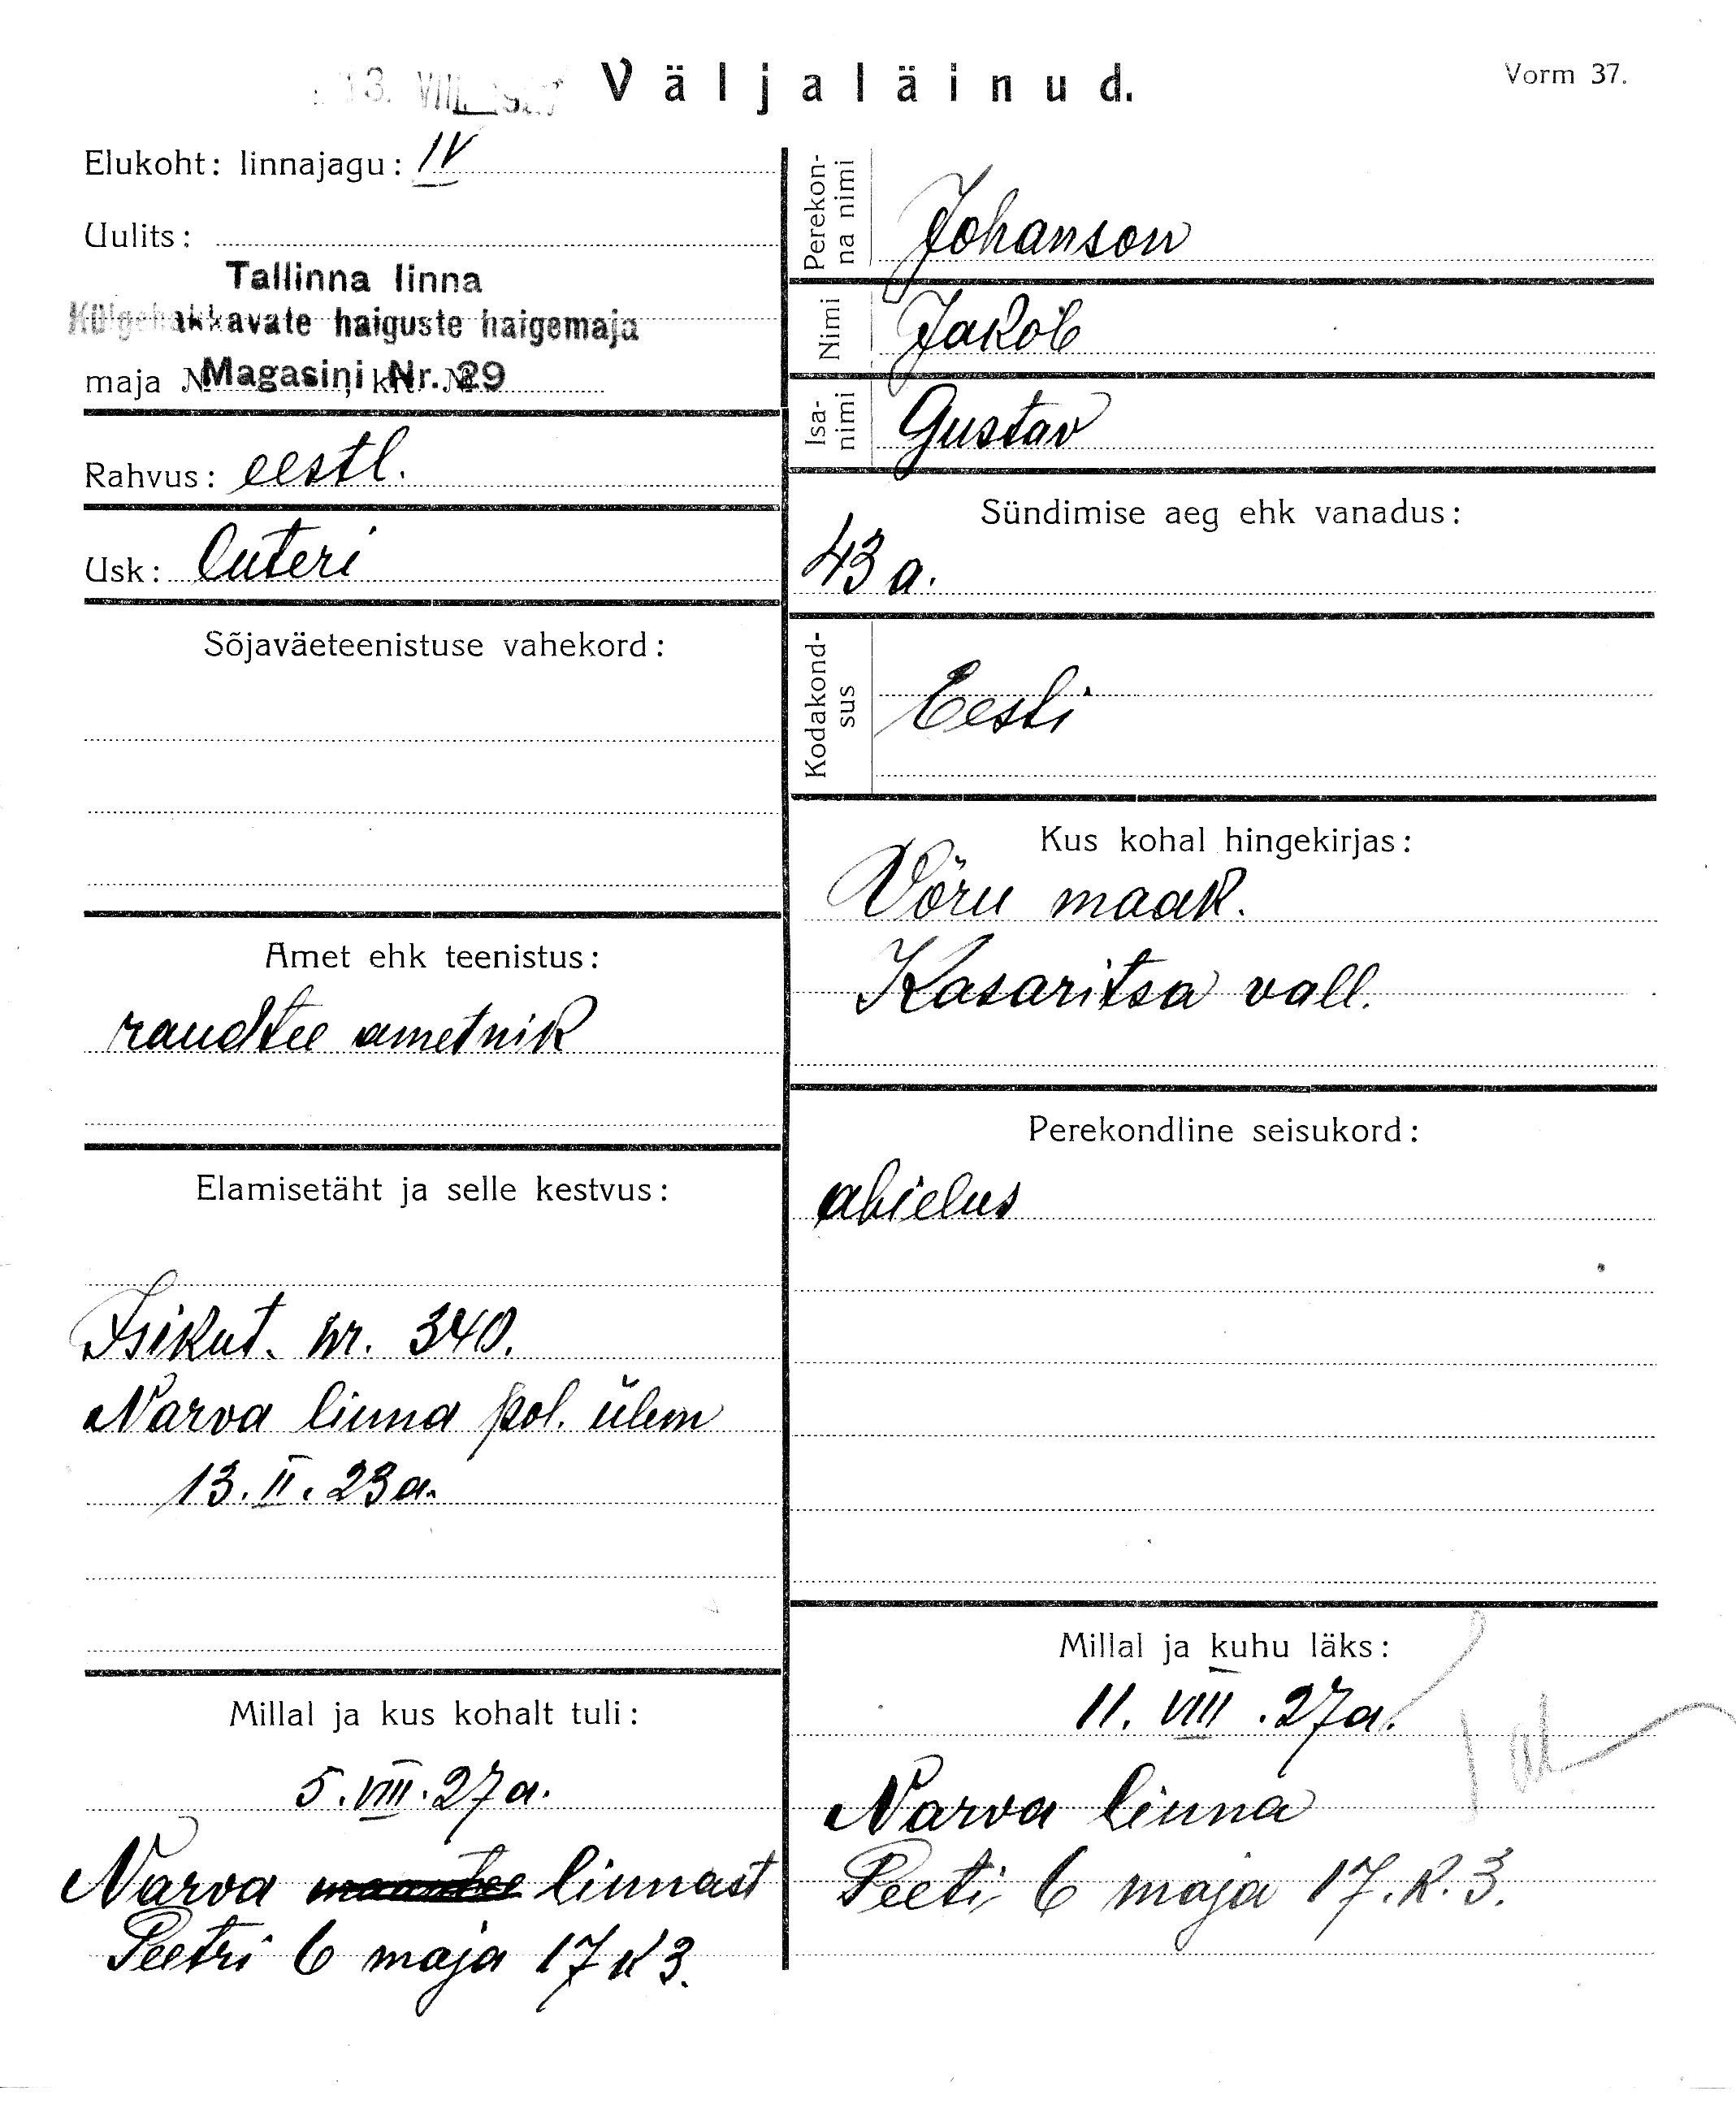 Väljaläinud.
Vorm 37.
Elukoht: linnajagu: IV
Uulits:
Tallinna linna
Külgehakkavate haiguste haigemaja
maja № Magasini, kr. Nr. 29
Rahvus: eestl.
Usk: luteri
Sõjaväeteenistuse vahekord:
Amet ehk teenistus:
raudtee ametnik
Elamisetäht ja selle kestvus:
Isikut. nr. 340.
Narva linna pol. ülem
13. II. 23 a.
Millal ja kus kohalt tuli:
5. VIII. 27 a.
Narva maantee linnast
Peetri 6 maja 17 k 3.
Perekonna nimi
Johanson
Nimi
Jakob
Isanimi
Gustav
Sündimise aeg ehk vanadus:
43 a.
Kodakondsus
Eesti
Kus kohal hingekirjas:
Võru maak.
Kasaritsa vall.
Perekondline seisukord:
abielus
Millal ja kuhu läks:
11. VIII. 27 a.
Narva linna
Peeti 6 maja 17. k. 3.